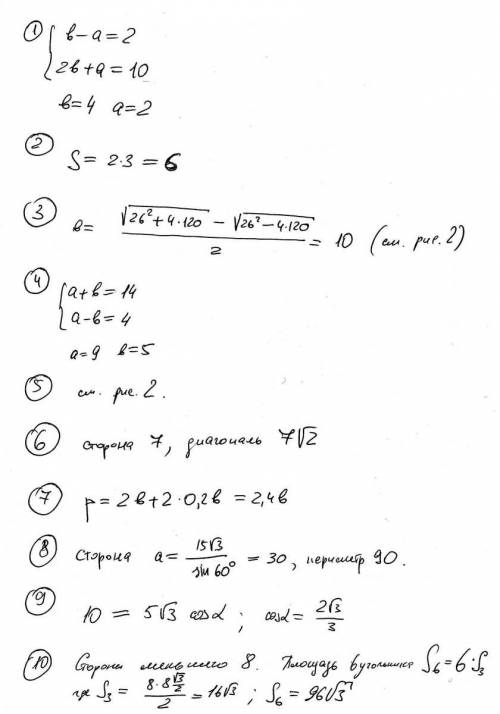 ① { в−a=2
2в+a=10
в=4 a=2
② S= 2·3 = 6
③ в= (√(26²+4·120) − √(26²−4·120))/2 = 10 (см. рис. 2)
④ { a+в=14
a−в=4
a=9 в=5
⑤ см. рис. 2.
⑥ сторона 7, диагональ 7√2
⑦ p= 2в+2·0,2в = 2,4в
⑧ Сторона a= 15√3/sin 60° = 30, периметр 90.
⑨ 10 = 5√3 cosα ; cosα= 2√3/3
⑩ Стороны меньшего 8. Площадь 6угольника S₆=6·S₃
где S₃ = (8·8 √3/2)/2 = 16√3 ; S₆= 96√3